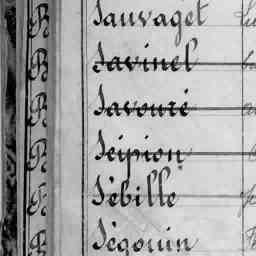 Sauvaget
Savinel
Savouré
Scipion
Sébille
Ségouin